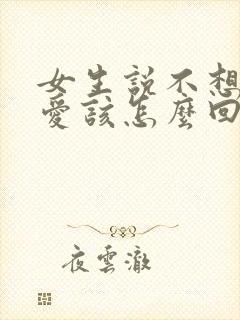 女生說不想
愛該怎麼回
夜雲澈